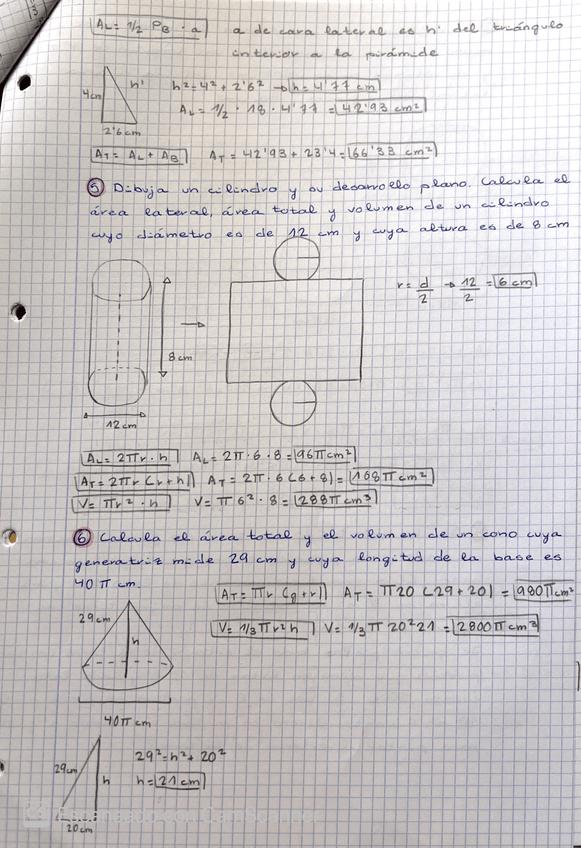 AL = 1/2 PB · a  a de cara lateral es h' del triángulo
interior a la pirámide
4cm  h'  h² = 4² + 2'6² → h = 4'77 cm
AL = 1/2 · 18 · 4'77 = 42'93 cm²
2'6cm
AT = AL + AB  AT = 42'93 + 23'4 = 66'33 cm²
5 Dibuja un cilindro y su desarrollo plano. Calcula el
área lateral, área total y volumen de un cilindro
cuyo diámetro es de 12 cm y cuya altura es de 8 cm
r = d/2 → 12/2 = 6 cm
8 cm
12 cm
AL = 2πr · h  AL = 2π · 6 · 8 = 96π cm²
AT = 2πr (r + h)  AT = 2π · 6 (6 + 8) = 168π cm²
V = πr² · h  V = π 6² · 8 = 288π cm³
6 Calcula el área total y el volumen de un cono cuya
generatriz mide 29 cm y cuya longitud de la base es
40 π cm.
AT = πr (g + r)  AT = π20 (29 + 20) = 980π cm²
29 cm  h  V = 1/3 πr² h  V = 1/3 π 20² 21 = 2800π cm³
40π cm
29cm  h  29² = h² + 20²
h = 21 cm
Escaneado con CamScanner
20 cm